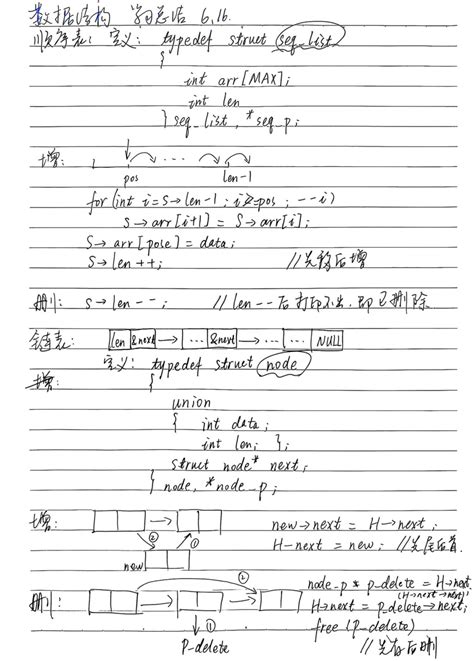 数据结构 简单总结 6.16.
顺序表: 定义: typedef struct seq_list
{
int arr[MAX];
int len
} seq_list, *seq_p;
增:
pos len-1
for(int i=S→len-1; i≥pos; --i)
S→arr[i+1] = S→arr[i];
S→arr[pose] = data;
S→len++; //先移后增
删: S→len--; //len--后打印不出,即已删除
链表: len &next → ... &next → ... ... NULL
定义: typedef struct node
增: {
union
{ int data;
int len; };
struct node* next;
} node, *node_p;
增: ② ① new→next = H→next;
H-next = new; //先尾后首
new
删: ② node_p * p_delete = H→next
(H→next→next)
H→next = P_delete→next;
① free(P_delete)
P-delete //先存后删